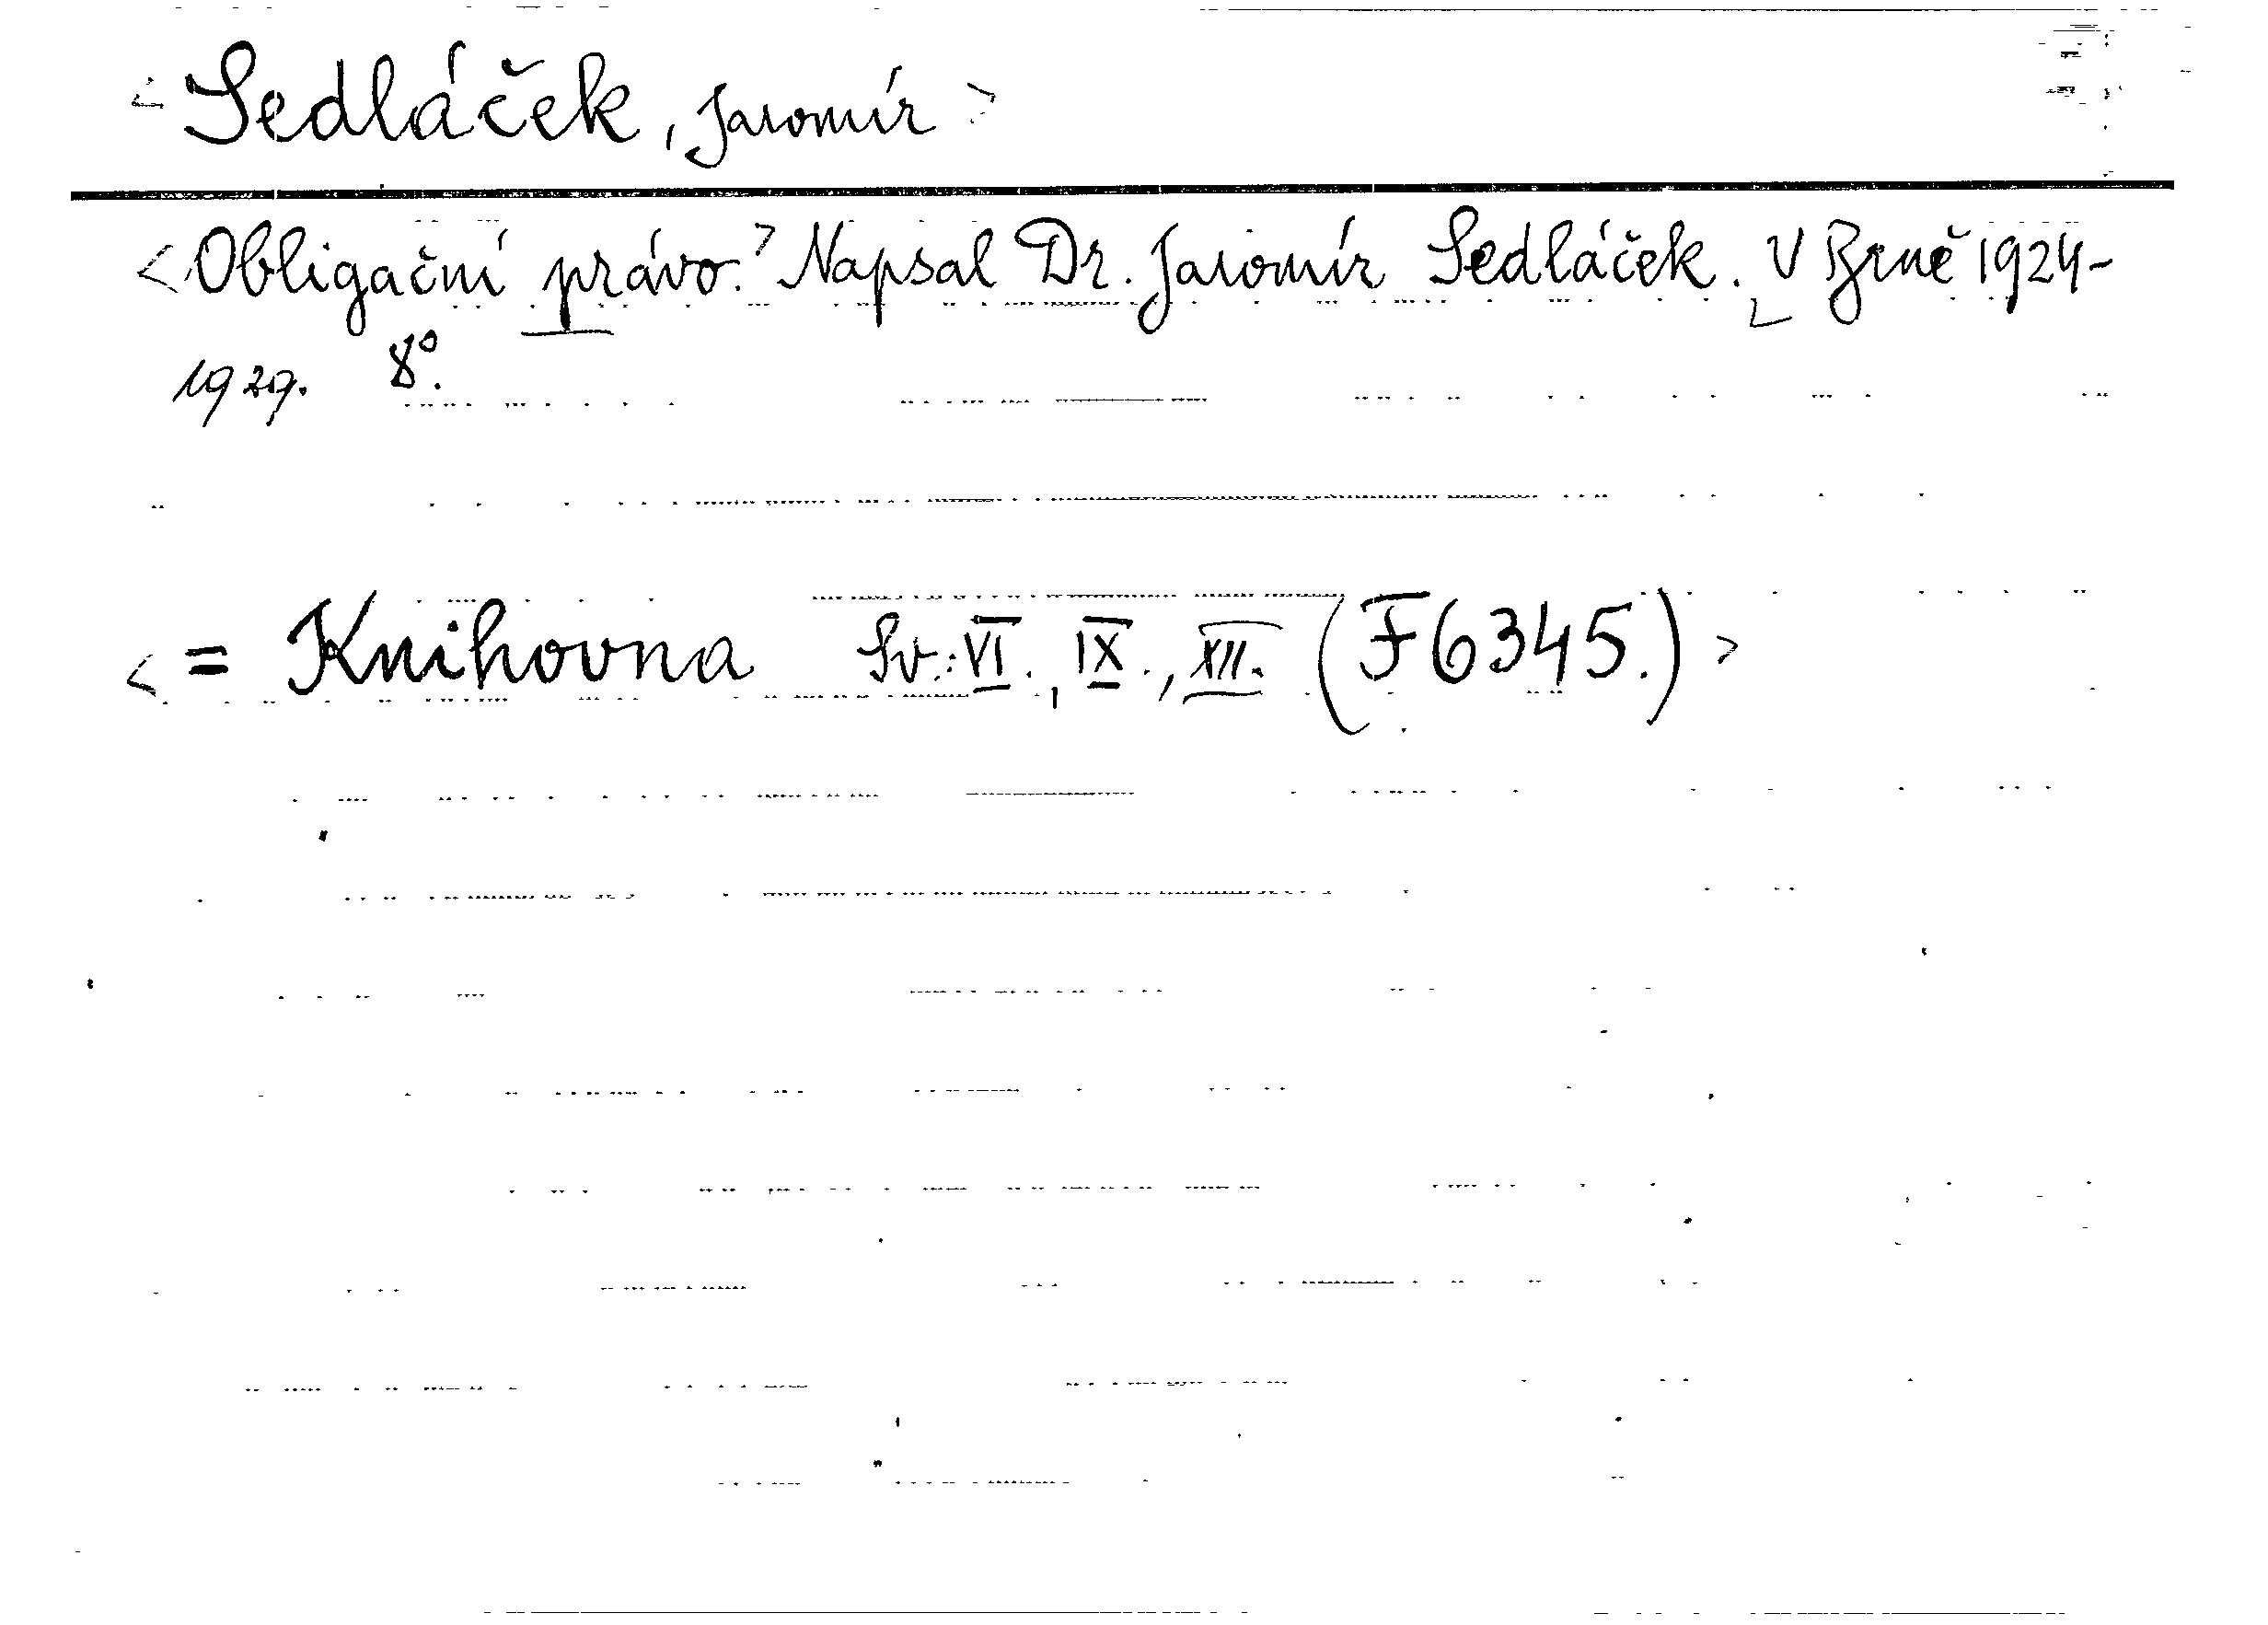 <Sedláček, Jaromír>
<Obligační právo.> Napsal Dr. Jaromír Sedláček. V Brně 1924-
1929. 8°.
<= Knihovna Sv. VI., IX., XII. (F6345.)>